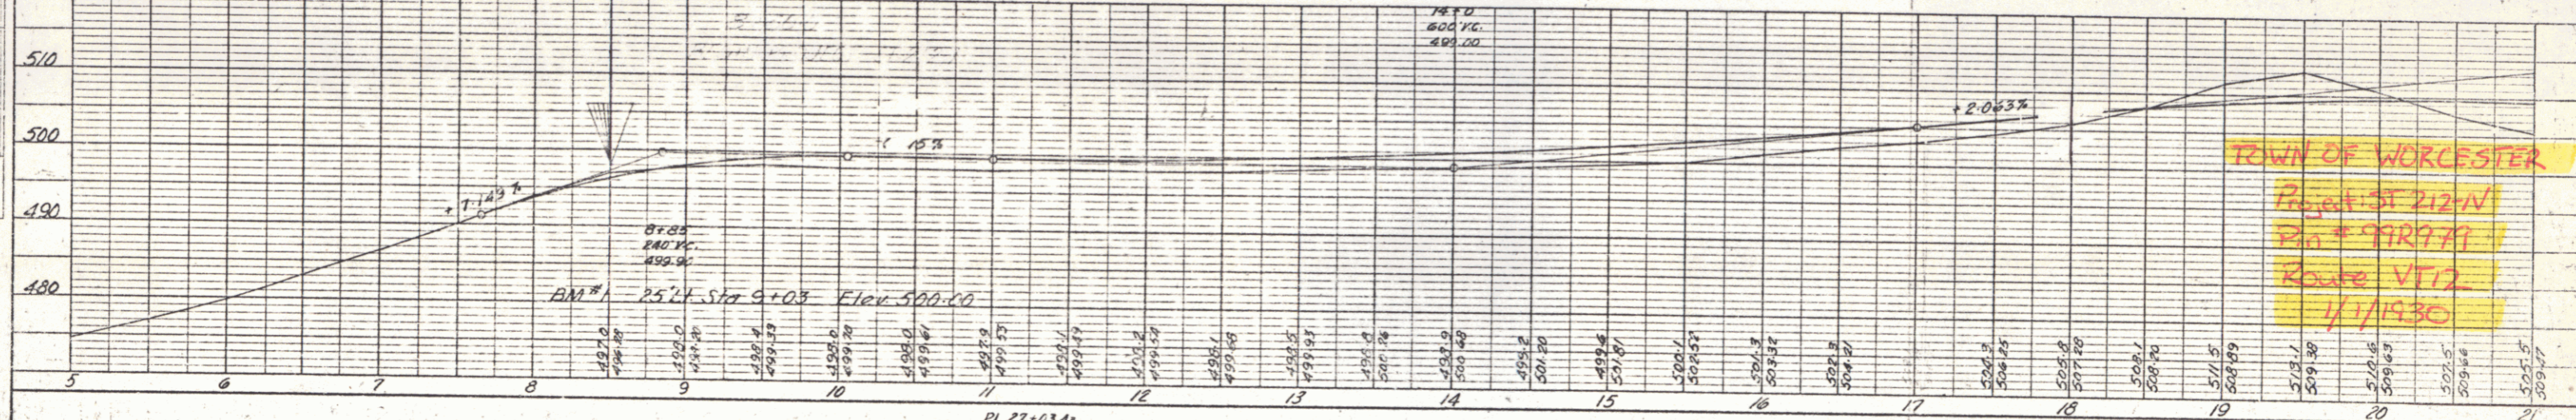 14+0
600' V.C.
499.00
510
500
490
480
+7.149%
15%
+2.063%
8+85
240' V.C.
499.90
BM#1 25' Lt Sta 9+03 Elev. 500.00
TOWN OF WORCESTER
Project: ST 212-N
Pin # 99R979
Route VT12
1/1/1930
497.0
498.0
498.20
498.4
499.33
499.0
499.70
499.0
499.61
497.9
499.53
499.1
499.49
499.54
498.1
499.68
498.5
499.93
498.8
500.26
498.9
500.68
499.2
501.20
499.6
501.81
500.1
502.52
501.3
503.32
502.3
504.21
504.3
506.25
505.8
507.28
508.1
508.20
511.5
508.89
513.1
509.38
510.6
509.63
507.5
509.66
505.5
509.47
5 6 7 8 9 10 11 12 13 14 15 16 17 18 19 20 21